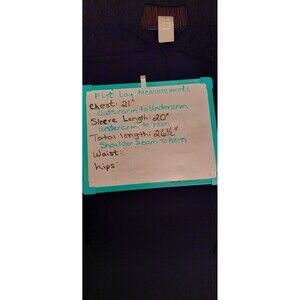 Flat Lay Measurements
Chest: 21"
underarm to underarm
Sleeve Length: 20"
underarm to hem
Total length: 26½"
Shoulder Seam to hem
Waist:
hips: